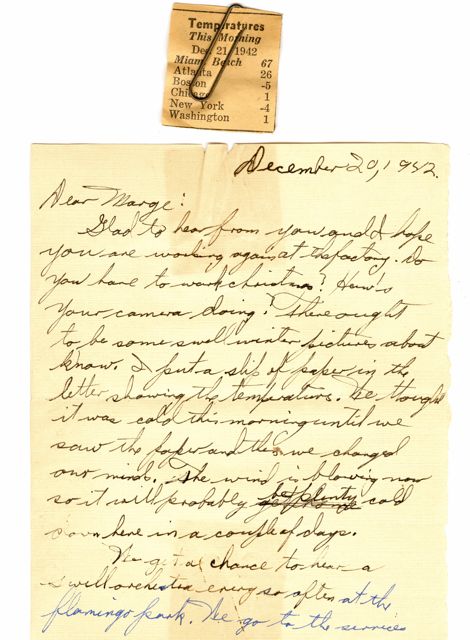 Temperatures
This Morning
Dec. 21, 1942
Miami Beach 67
Atlanta 26
Boston -5
Chicago 1
New York -4
Washington 1
December 20, 1942.
Dear Marge:
Glad to hear from you and I hope
you are working again at the factory. Do
you have to work Christmas? How's
your camera doing? There ought
to be some swell winter pictures about
know. I put a slip of paper in the
letter showing the temperature. We thought
it was cold this morning until we
saw the paper and then we changed
our minds. The wind is blowing now
so it will probably be plenty cold
down here in a couple of days.
We get a chance to hear a
swell orchestra every so often at the
flamingo park. We go to the services